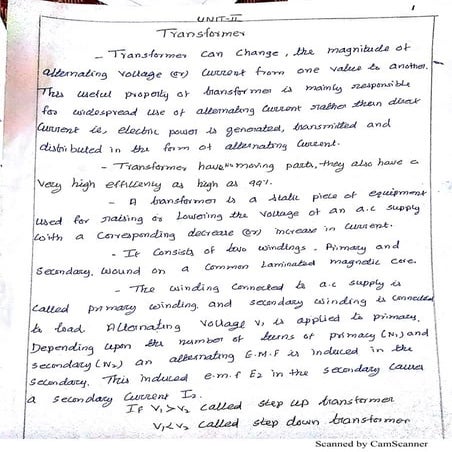 1
UNIT-II
Transformer
- Transformer can change, the magnitude of
alternating voltage (or) current from one value to another.
This useful property of transformer is mainly responsible
for widespread use of alternating current rather than direct
current ie, electric power is generated, transmitted and
distributed in the form of alternating current.
- Transformer have no moving parts, they also have a
very high efficiency as high as 99%.
- A transformer is a static piece of equipment
used for raising or lowering the voltage of an a.c supply
with a corresponding decrease (or) increase in current.
- It consists of two windings. Primary and
secondary, wound on a common laminated magnetic core.
- The winding connected to a.c supply is
called primary winding and secondary winding is connected
to load. Alternating voltage V₁ is applied to primary.
Depending upon the number of turns of primary (N₁) and
secondary (N₂) an alternating E.M.F is induced in the
secondary. This induced e.m.f E₂ in the secondary causes
a secondary current I₂.
If V₁>V₂ called step up transformer
V₁<V₂ called step down transformer
Scanned by CamScanner